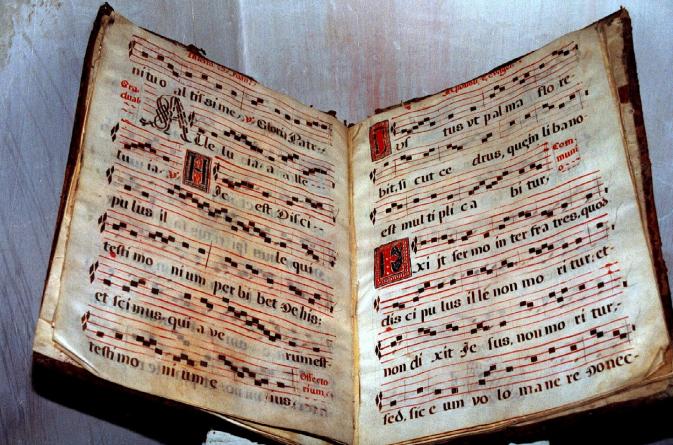 ni tu o al tis si me, ℣. Gloria Patri.
Gra
dual
A l le lu ia, a lle
lu ia. ℣. H Ic est Disci
pu lus il le qui
testi mo ni um per bi bet De his:
et sci mus, qui a ve rum est
testi mo ni um e ius
Offerto
rium.
I us tus vt pal ma flo re
bit, si cut ce drus, que in li bano
Com
muni
o
est mul ti pli ca bi tur,
E xi jt ser mo in ter fra tres, quod
dis ci pu lus il le non mo ri tur; et
non di xit Je sus, non mo ri tur;
sed, sic e um vo lo ma ne re Donec